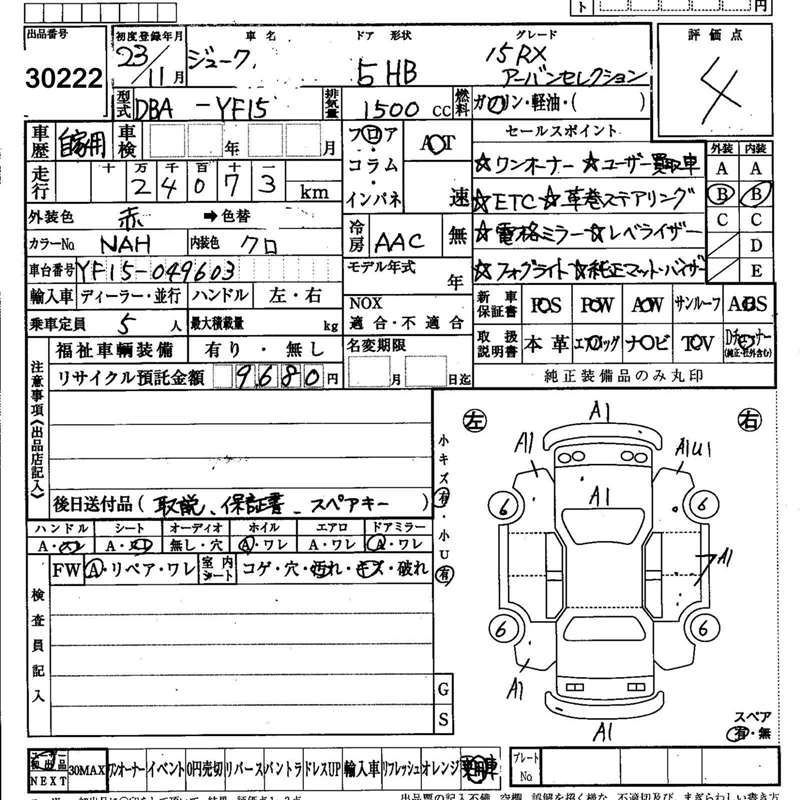 ト 円
出品番号 初度登録年月 車名 ドア 形状 グレード 評価点
30222 23/11月 ジューク 5HB 15RX アーバンセレクション 4
型式 DBA -YF15 排気量 1500 CC 燃料 ガソリン・軽油・( )
車歴 自家用 車検 年 月 フロア・コラム・インパネ AOT 速 セールスポイント 外装 内装
走行 十 万 千 百 十 一 km
2 4 0 7 3
☆ワンオーナー ☆ユーザー買取車 A A
☆ETC ☆革巻ステアリング B B
外装色 赤 ➡色替
カラーNo NAH 内装色 クロ 冷房 AAC 無 ☆電格ミラー ☆レベライザー C C
D
車台番号 YF15-049603 モデル年式 年 ☆フォグライト☆純正マット・バイザー E
輸入車 ディーラー・並行 ハンドル 左・右 NOX 適合・不適合 新車保証書 PS PW AW サンルーフ ABS
乗車定員 5 人 最大積載量 kg 取扱説明書 本革 エアバッグ ナビ TV Dチューナー (純正・社外含む)
福祉車輌装備 有り・無し 名変期限 月 日迄
リサイクル預託金額 9680円 純正装備品のみ丸印
注意事項《出品店記入》
後日送付品( 取説、保証書、スペアキー )
小キズ有・小U有
左 右
A1
A1 A1U1
A1
6 6
A1
6 6
A1
A1
ハンドル シート オーディオ ホイル エアロ ドアミラー
A・スレ A・スレ 無し・穴 A・ワレ A・ワレ A・ワレ
FW A・リペア・ワレ 室内シート コゲ・穴・汚れ・キズ・破れ
検査員記入
G
S
スペア
有・無
NEXT 30MAX ワンオーナー イベント 0円売切 リバース バントラ ドレスUP 輸入車 リフレッシュ オレンジ プレートNo